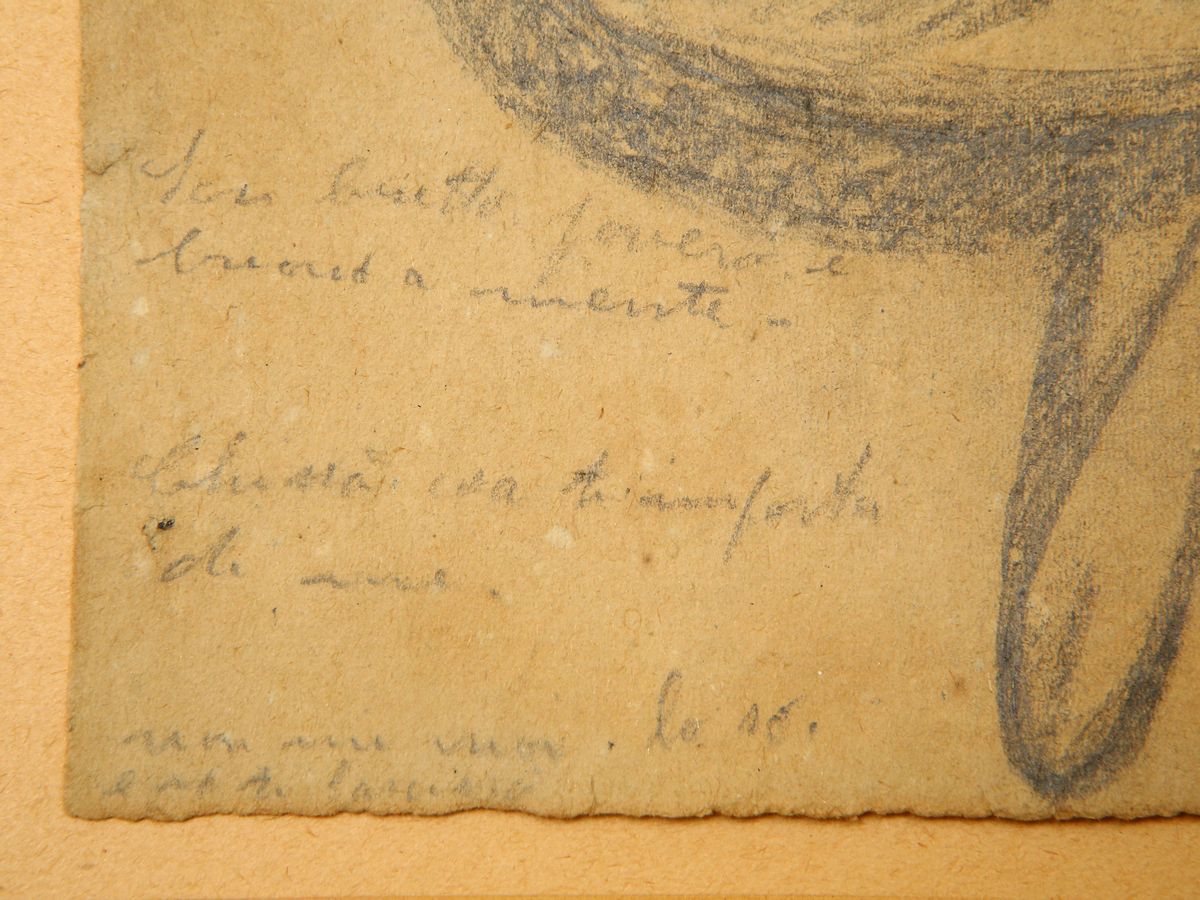 Son brutto povero. e
mente -
Chissà cosa t'importa
di me.
non mi vuoi. lo so.
e